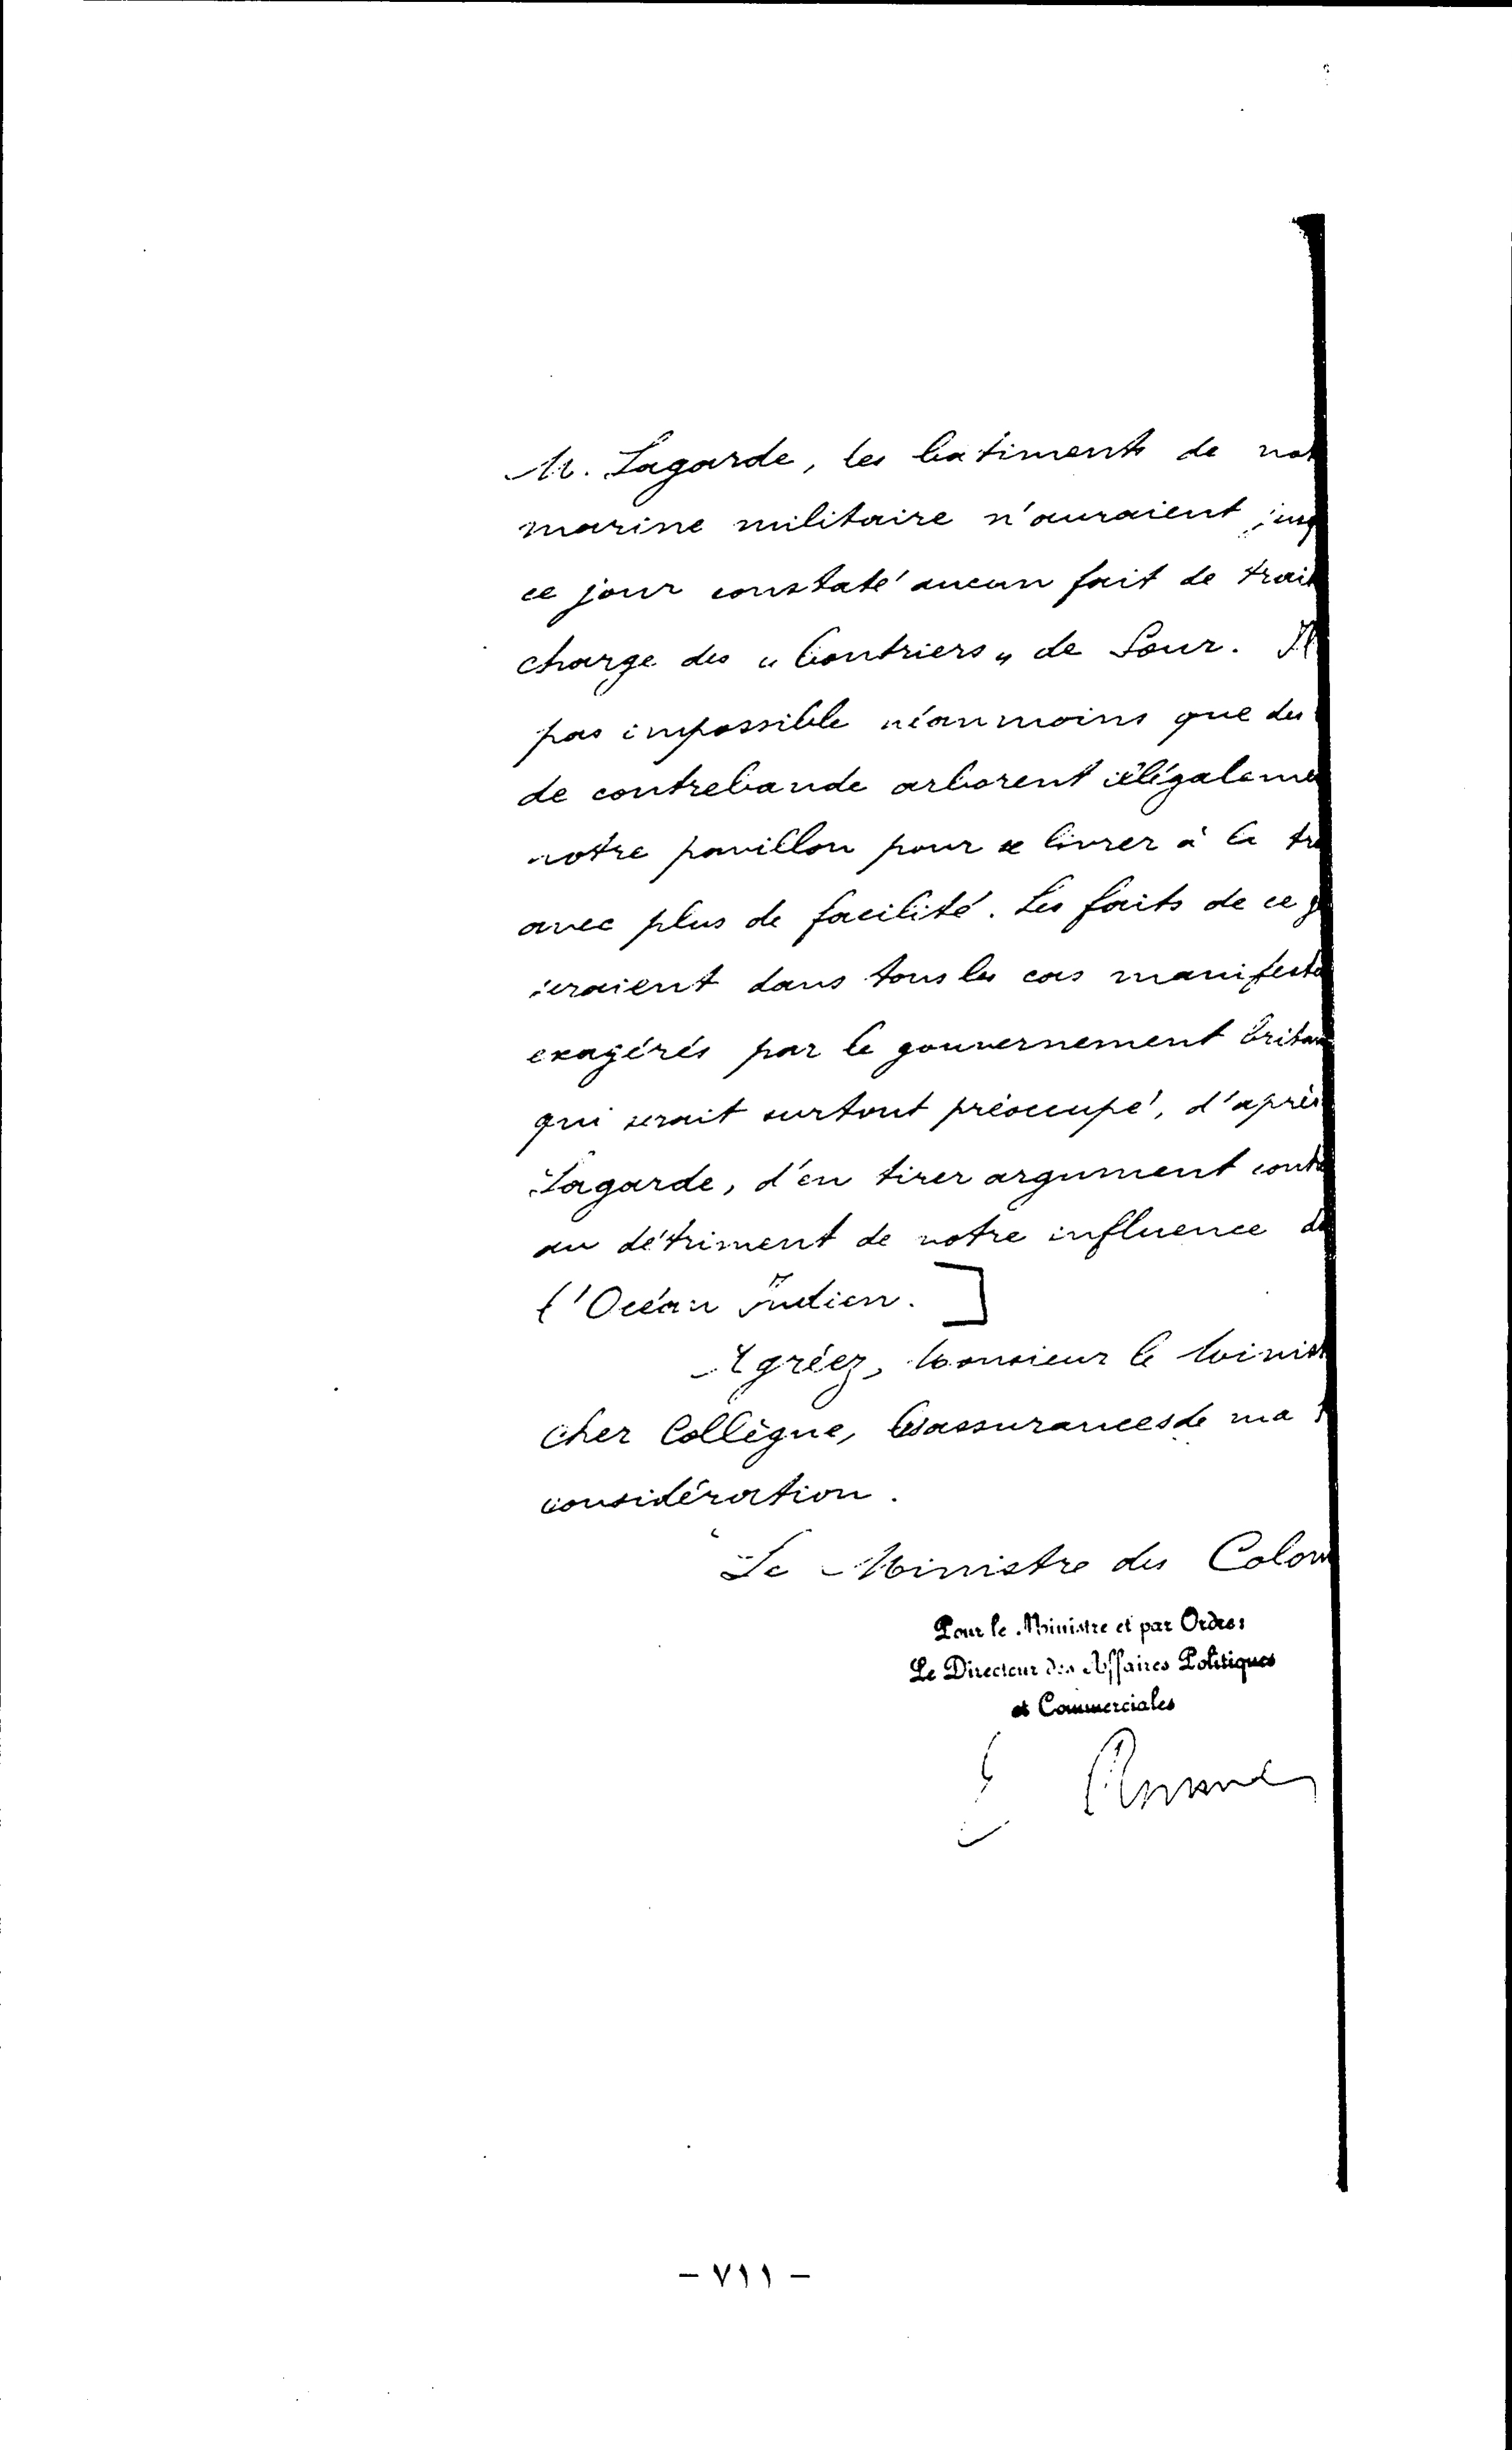 M. Lagarde, les batiments de not
marine militaire n'auraient jusq
ce jour constaté aucun fait de trait
charge des „ boutriers „ de Sour. Il
pas impossible néanmoins que des
de contrebande arborent illégaleme
notre pavillon pour se livrer à la tra
avec plus de facilité. Les faits de ce g
seraient dans tous les cas manifeste
exagérés par le gouvernement britan
qui serait surtout préoccupé, d'après
Lagarde, d'en tirer argument contr
au détriment de notre influence da
l'Océan Indien. ]
Agréez, Monsieur le Minist
cher Collègue, les assurances de ma
considération.
Le Ministre des Colon
Pour le Ministre et par Ordre:
Le Directeur des Affaires Politiques
et Commerciales
- ٧١١ -